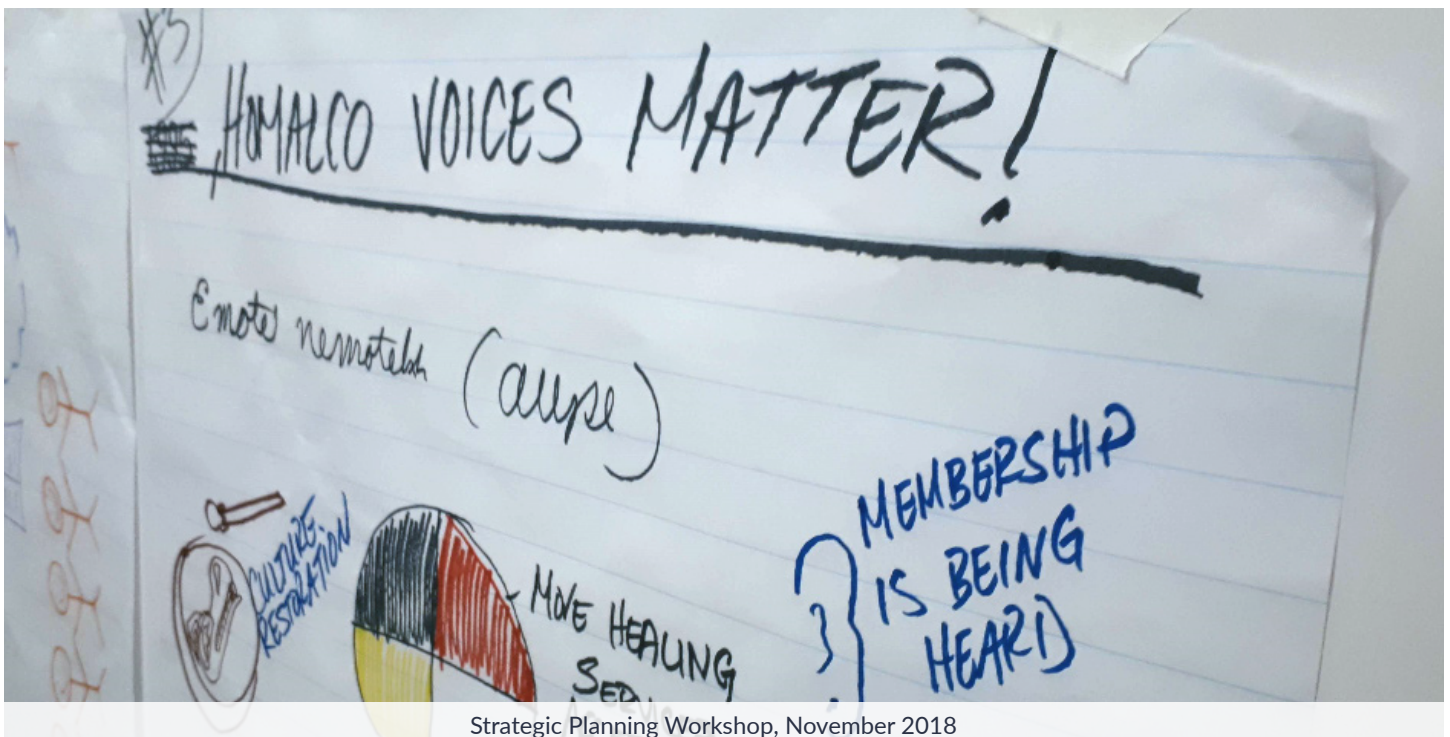 #3
HOMALCO VOICES MATTER!
Emote (aupe)
CULTURE
RESTORATION
MOVE HEALING
MEMBERSHIP
IS BEING
HEARD
Strategic Planning Workshop, November 2018